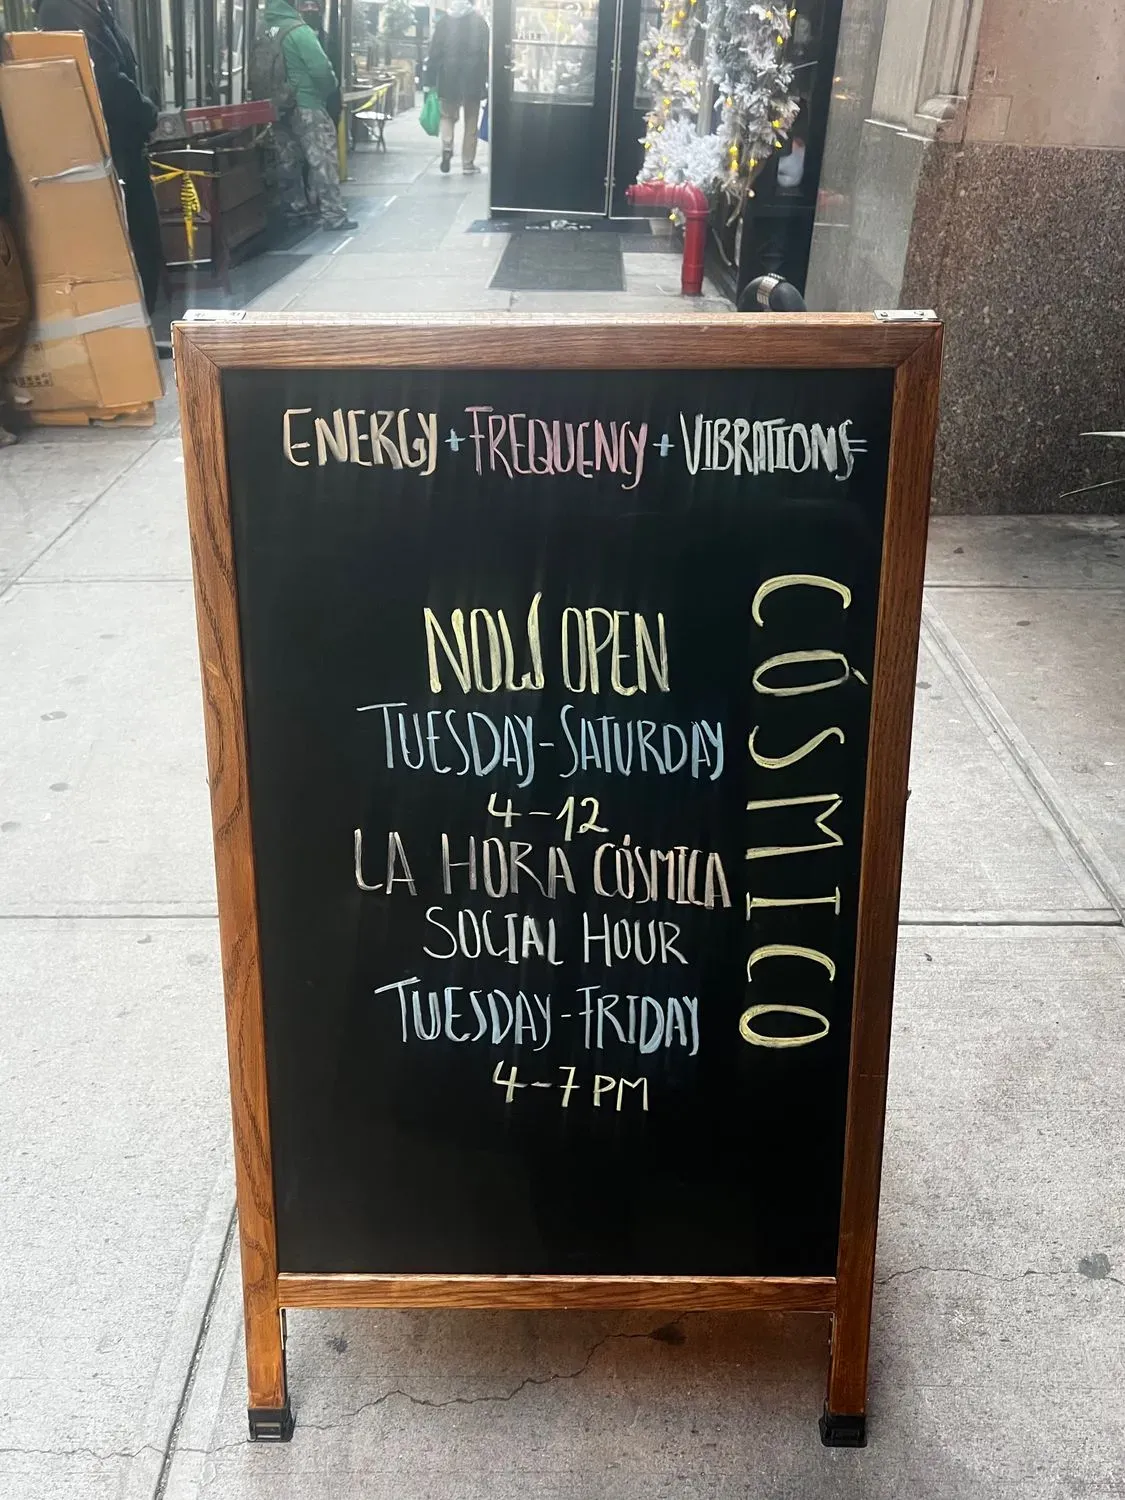 ENERGY + FREQUENCY + VIBRATIONS =
CÓSMICO
NOW OPEN
TUESDAY-SATURDAY
4-12
LA HORA CÓSMICA
SOCIAL HOUR
TUESDAY-FRIDAY
4-7 PM